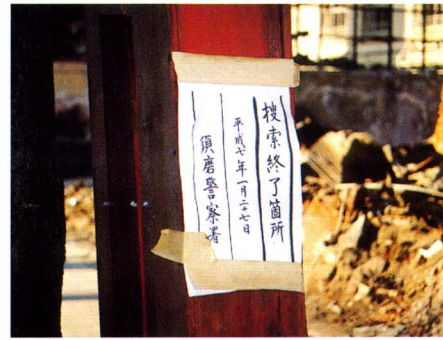 捜索終了箇所
平成七年一月二十七日
須磨警察署